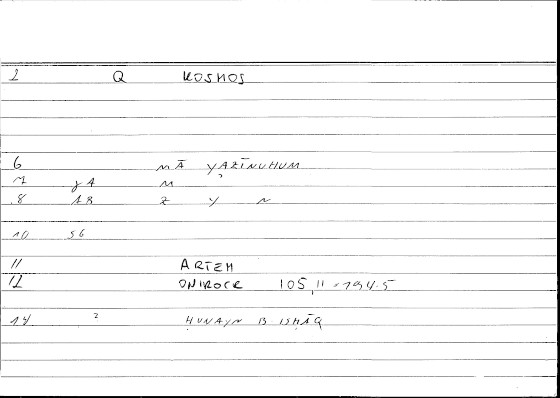 1 Q KOSMOS
6 MĀ YAZĪNUHUM
7 YA M
8 AR Z Y N
10 SG
11 ARTEM
12 ONIROCR 105,11 = 194.5
14 2 ḤUNAYN B ISḤĀQ